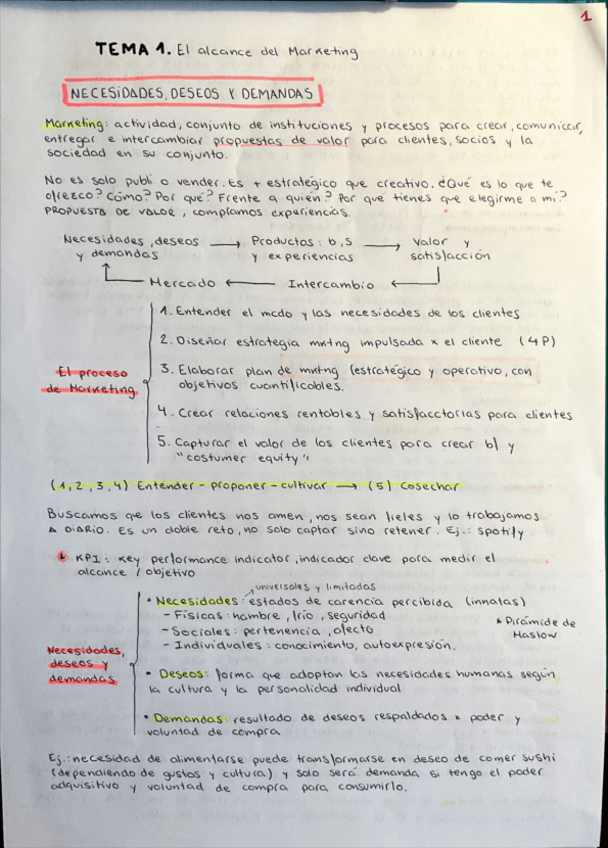 1
TEMA 1. El alcance del Marketing
NECESIDADES, DESEOS Y DEMANDAS
Marketing: actividad, conjunto de instituciones y procesos para crear, comunicar,
entregar e intercambiar propuestas de valor para clientes, socios y la
sociedad en su conjunto.
No es solo publi o vender. Es + estratégico que creativo. ¿Qué es lo que te
ofrezco? Cómo? Por qué? Frente a quién? Por qué tienes que elegirme a mí?
PROPUESTA DE VALOR, compramos experiencias.
Necesidades, deseos → Productos: b, s → Valor y
y demandas y experiencias satisfacción
Mercado ← Intercambio ←
El proceso
de Marketing
1. Entender el mcdo y las necesidades de los clientes
2. Diseñar estrategia mktng impulsada x el cliente (4P)
3. Elaborar plan de mktng (estratégico y operativo, con
objetivos cuantificables.
4. Crear relaciones rentables y satisfacctorias para clientes
5. Capturar el valor de los clientes para crear bf y
"costumer equity"
(1,2,3,4) Entender - proponer - cultivar → (5) Cosechar
Buscamos que los clientes nos amen, nos sean fieles y lo trabajamos
A DIARIO. Es un doble reto, no solo captar sino retener. Ej.: spotify
* KPI: Key performance indicator, indicador clave para medir el
alcance / objetivo
Necesidades,
deseos y
demandas
universales y limitadas
• Necesidades: estados de carencia percibida (innatas)
- Físicas: hambre, frío, seguridad
- Sociales: pertenencia, afecto
- Individuales: conocimiento, autoexpresión.
* Pirámide de
Maslow
• Deseos: forma que adoptan las necesidades humanas según
la cultura y la personalidad individual
• Demandas: resultado de deseos respaldados x poder y
voluntad de compra
Ej.: necesidad de alimentarse puede transformarse en deseo de comer sushi
(dependiendo de gustos y cultura) y solo será demanda si tengo el poder
adquisitivo y voluntad de compra para consumirlo.